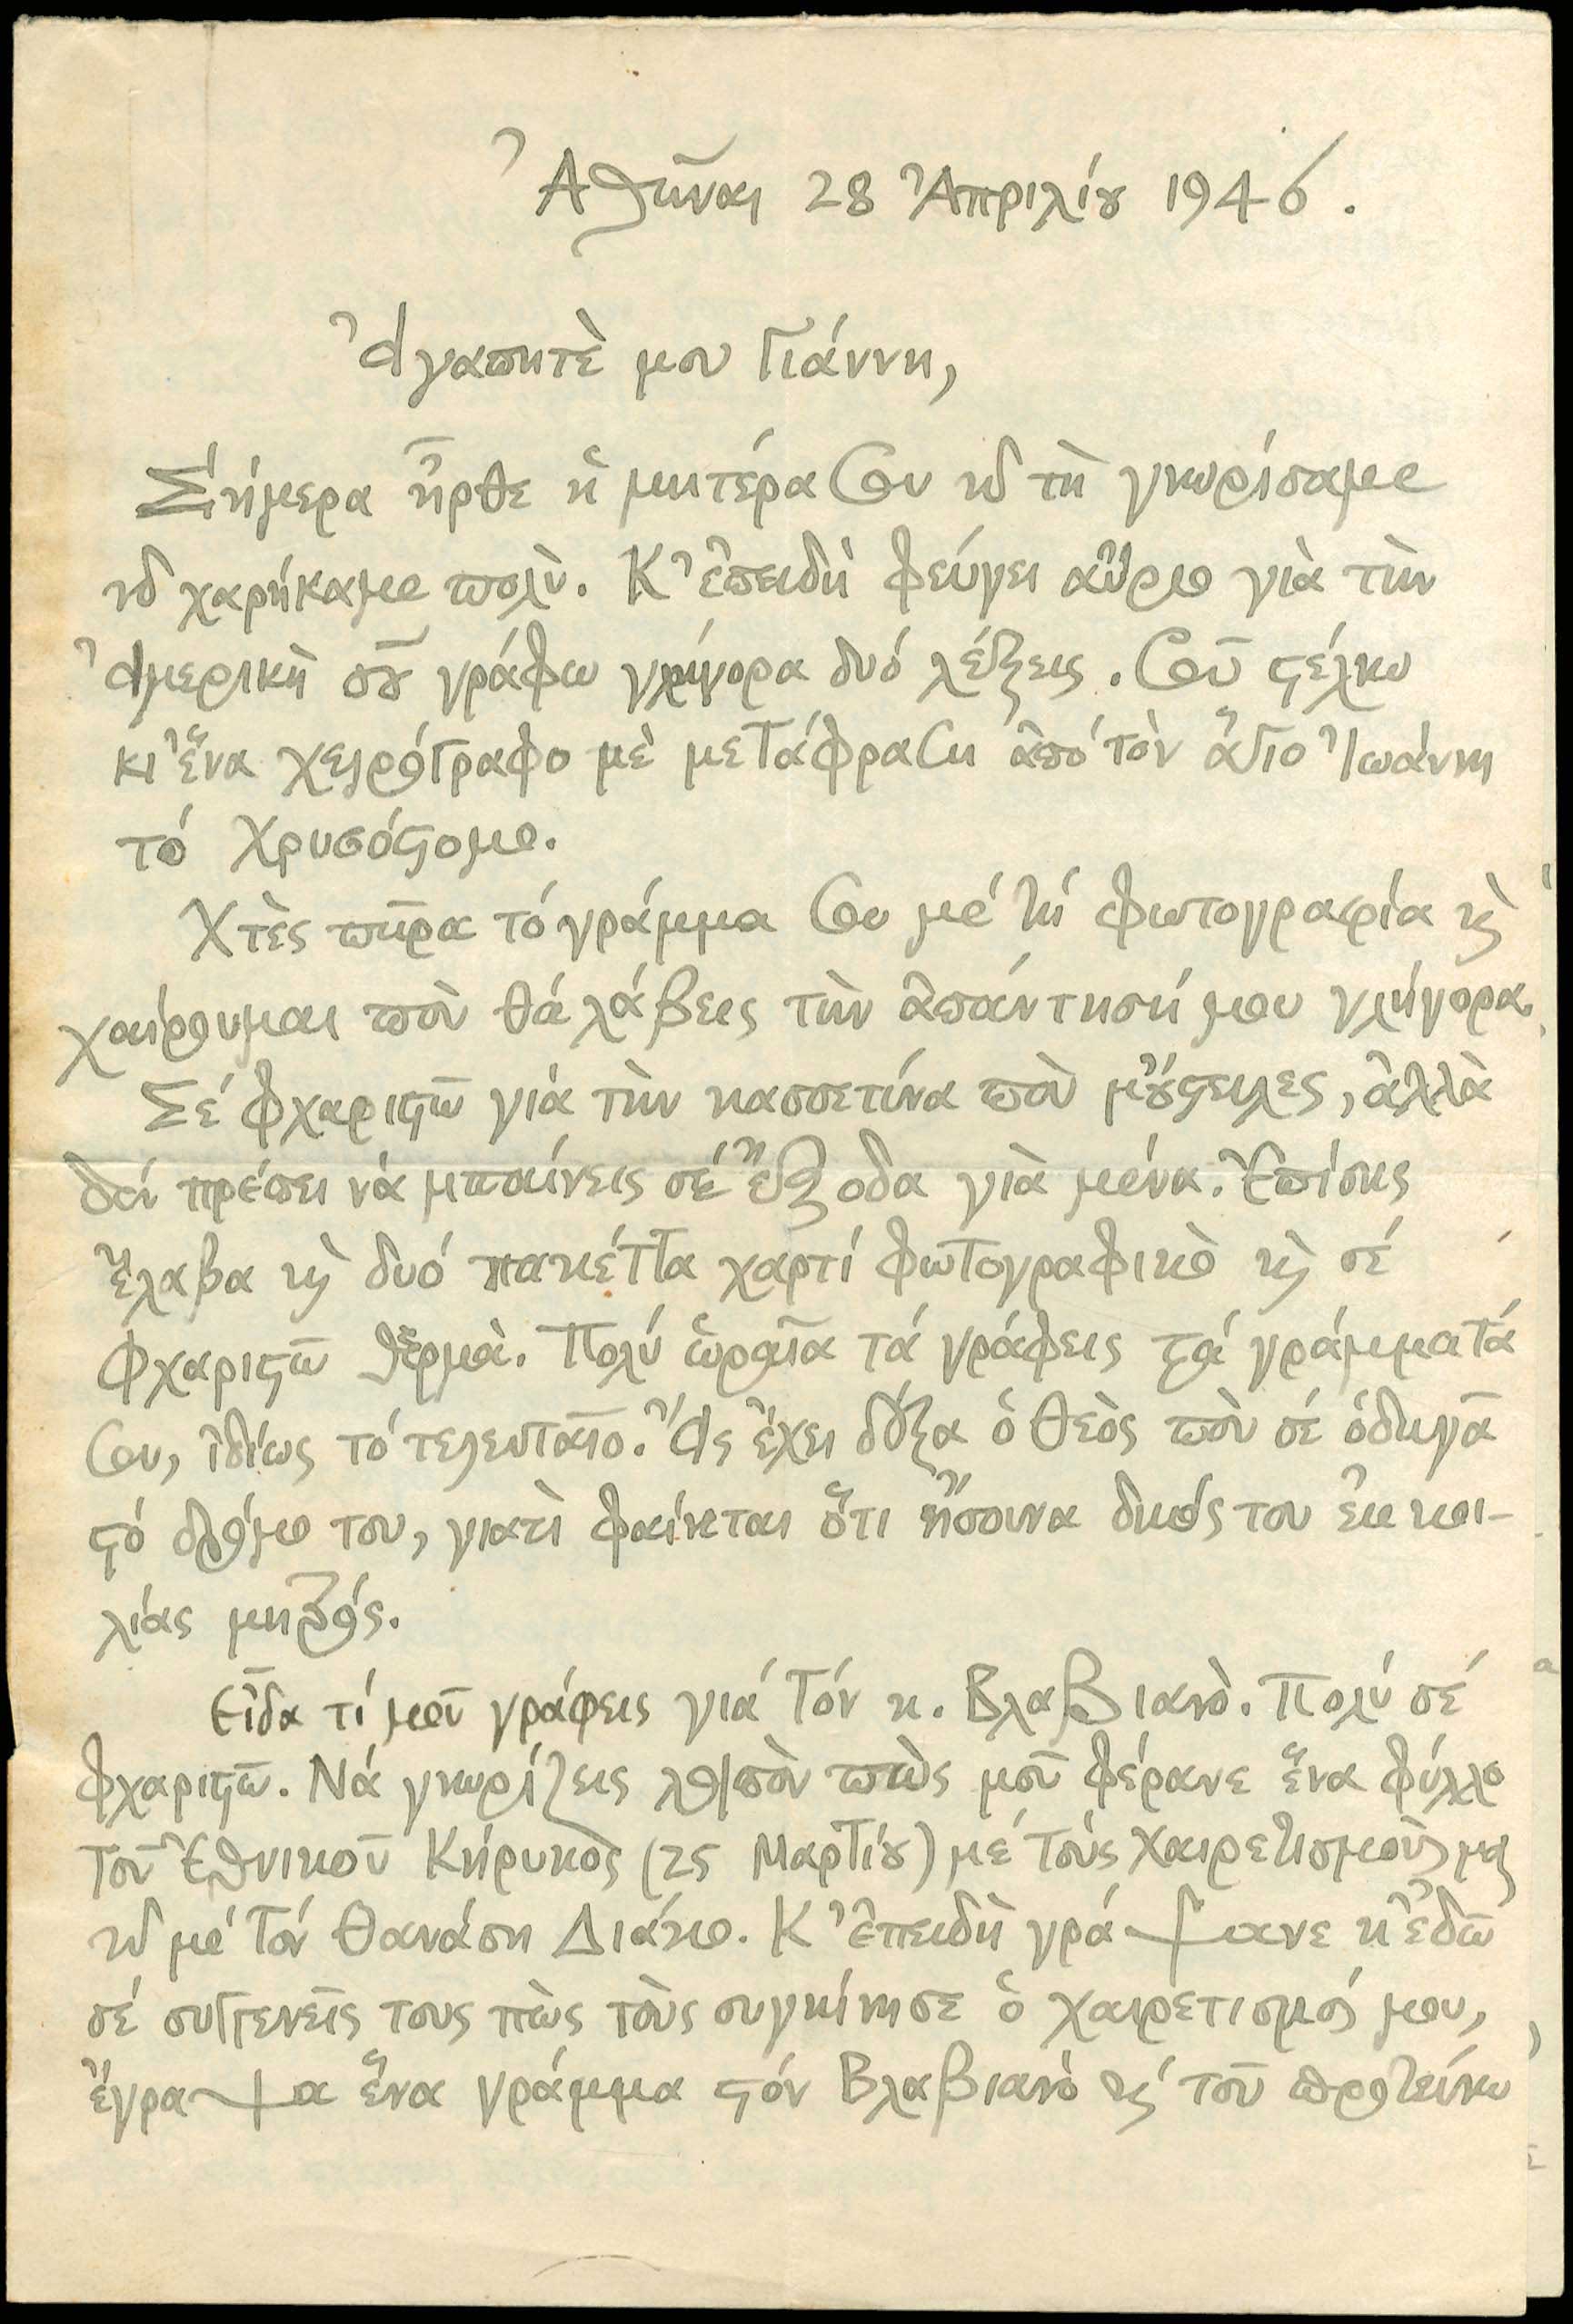 Ἀθῆναι 28 Ἀπριλίου 1946.
Ἀγαπητὲ μου Γιάννη,
Σήμερα ἦρθε ἡ μητέρα σου καὶ τὴ γνωρίσαμε
καὶ χαρήκαμε πολὺ. Κ' ἐπειδὴ φεύγει αὔριο γιὰ τὴν
Ἀμερικὴ σοῦ γράφω γλίγορα δυό λέξεις. Σοῦ στέλνω
κι' ἕνα χειρόγραφο μὲ μετάφραση ἀπό τὸν ἅγιο Ἰωάννη
τό Χρυσόστομο.
Χτὲς πῆρα τό γράμμα σου μέ τή φωτογραφία καὶ
χαίρουμαι ποὺ θά λάβεις τὴν ἀπάντησή μου γλήγορα.
Σέ φχαριστῶ γιά τὴν κασσετίνα ποὺ μοὔστειλες, ἀλλὰ
δέν πρέπει νά μπαίνεις σέ ἔξοδα γιὰ μένα. Ἐπίσης
ἔλαβα καὶ δυό πακέττα χαρτί φωτογραφικὸ καὶ σέ
φχαριστῶ θερμὰ. Πολύ ὡραῖα τά γράφεις στά γράμματά
σου, ἰδίως τό τελευταῖο. Ἄς ἔχει δόξα ὁ θεὸς ποὺ σέ ὁδηγᾶ
στό δρόμο του, γιατὶ φαίνεται ὅτι ἤσουνα δικός του ἐκ κοι-
λίας μητρός.
Εἶδα τί μοῦ γράφεις γιά τόν κ. Βλαβιανὸ. Πολύ σέ
φχαριστῶ. Νά γνωρίζεις λοιπὸν πὼς μοῦ φέρανε ἕνα φύλλο
τοῦ Ἐθνικοῦ Κήρυκος (25 Μαρτίου) μέ τούς χαιρετισμοὺς μας
καὶ μέ τόν Θανάση Διάκο. Κ' ἐπειδὴ γράψανε κ' ἐδῶ
σέ συγγενεῖς τους πὼς τοὺς συγκίνησε ὁ χαιρετισμός μου,
ἔγραψα ἕνα γράμμα στόν Βλαβιανὸ καὶ τοῦ προτείνω